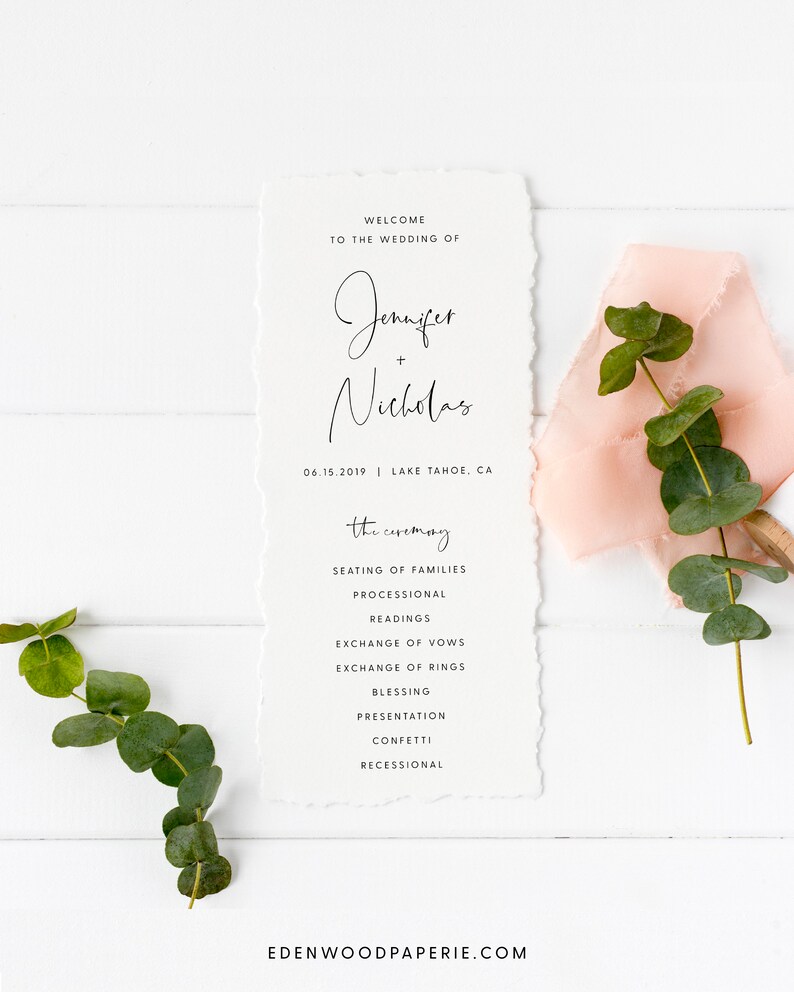 WELCOME
TO THE WEDDING OF
Jennifer
+
Nicholas
06.15.2019 | LAKE TAHOE, CA
the ceremony
SEATING OF FAMILIES
PROCESSIONAL
READINGS
EXCHANGE OF VOWS
EXCHANGE OF RINGS
BLESSING
PRESENTATION
CONFETTI
RECESSIONAL
EDENWOODPAPERIE.COM